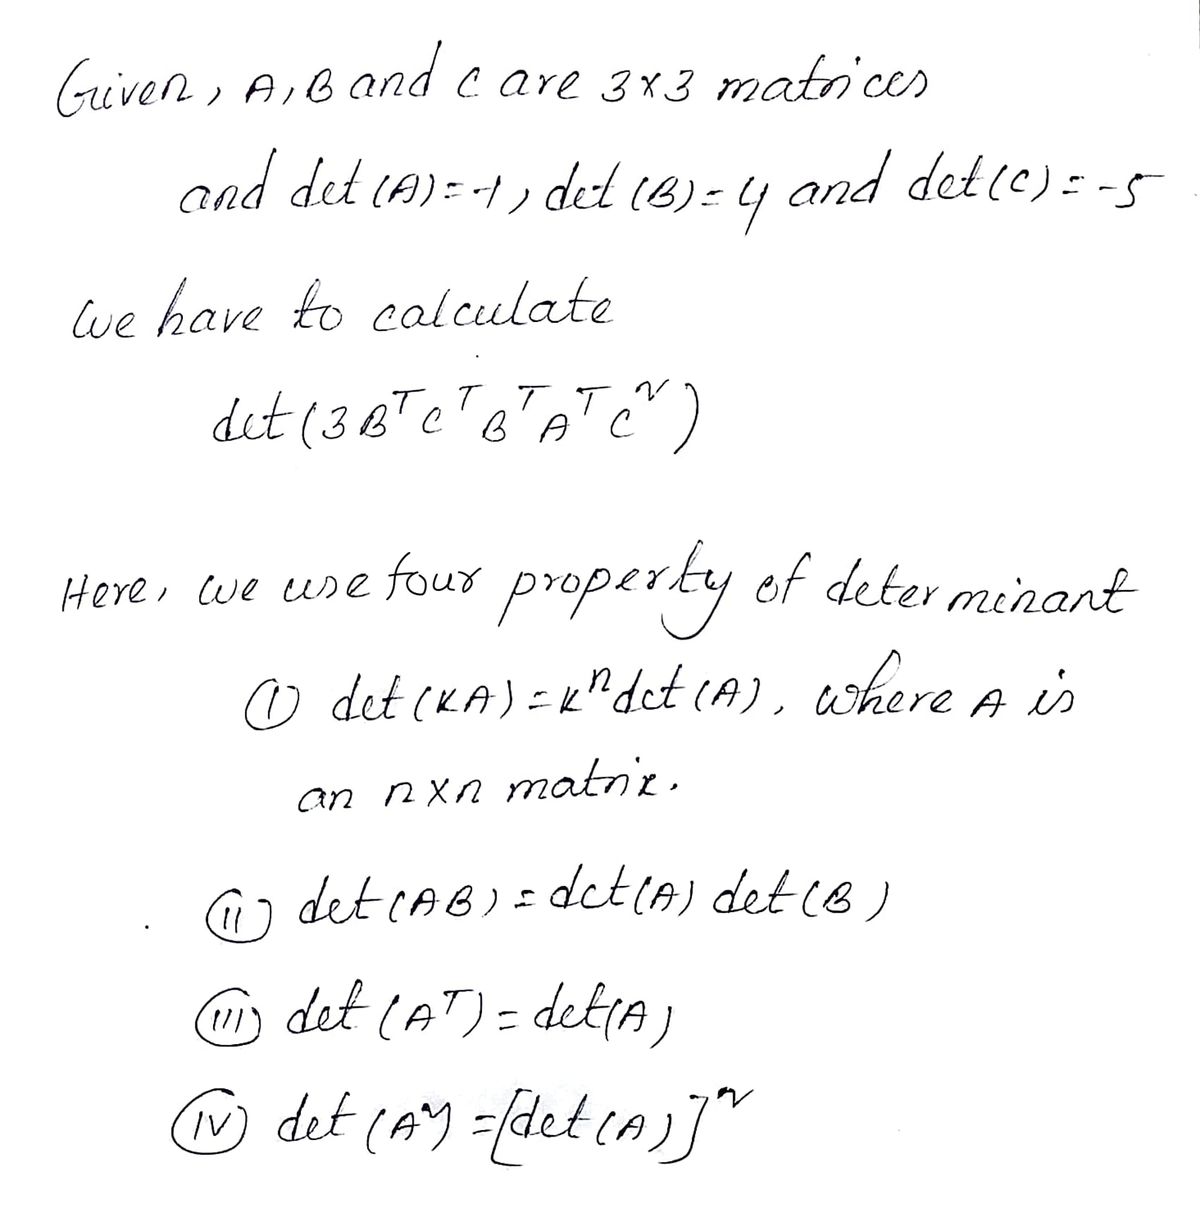 Given, A, B and C are 3x3 matrices
and det (A) = -1, det (B) = 4 and det (C) = -5
We have to calculate
det (3 Bᵀ Cᵀ Bᵀ Aᵀ C²)
Here, we use four property of determinant
(i) det (KA) = Kⁿ det (A), where A is
an n x n matrix.
(ii) det (AB) = det (A) det (B)
(iii) det (Aᵀ) = det (A)
(iv) det (A²) = [det (A)]²